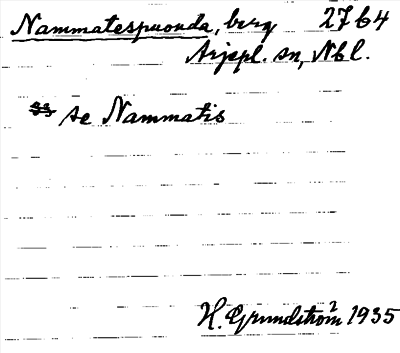 Nammatespuonda, berg 2764
Arjepl. sn, Nbl.
se Nammatis
H. Grundström 1935